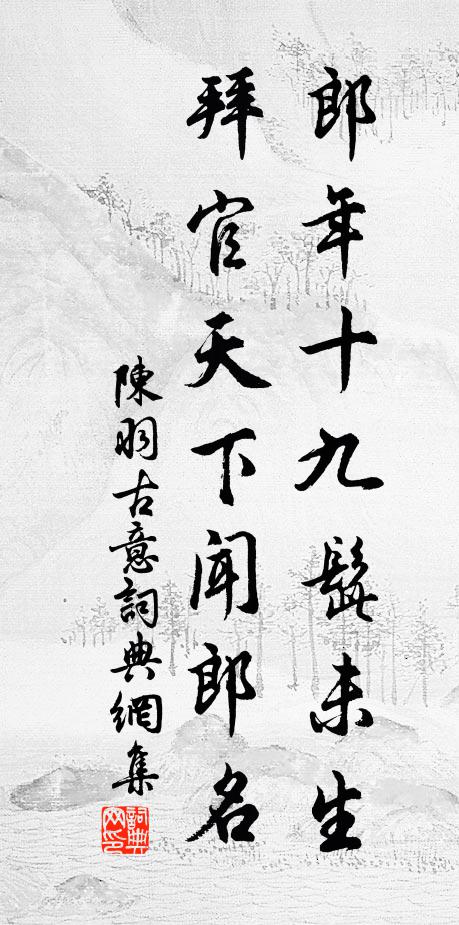 郎年十九髭未生
拜官天下聞郎名
陳羽古意詞典網集
詞典
网印